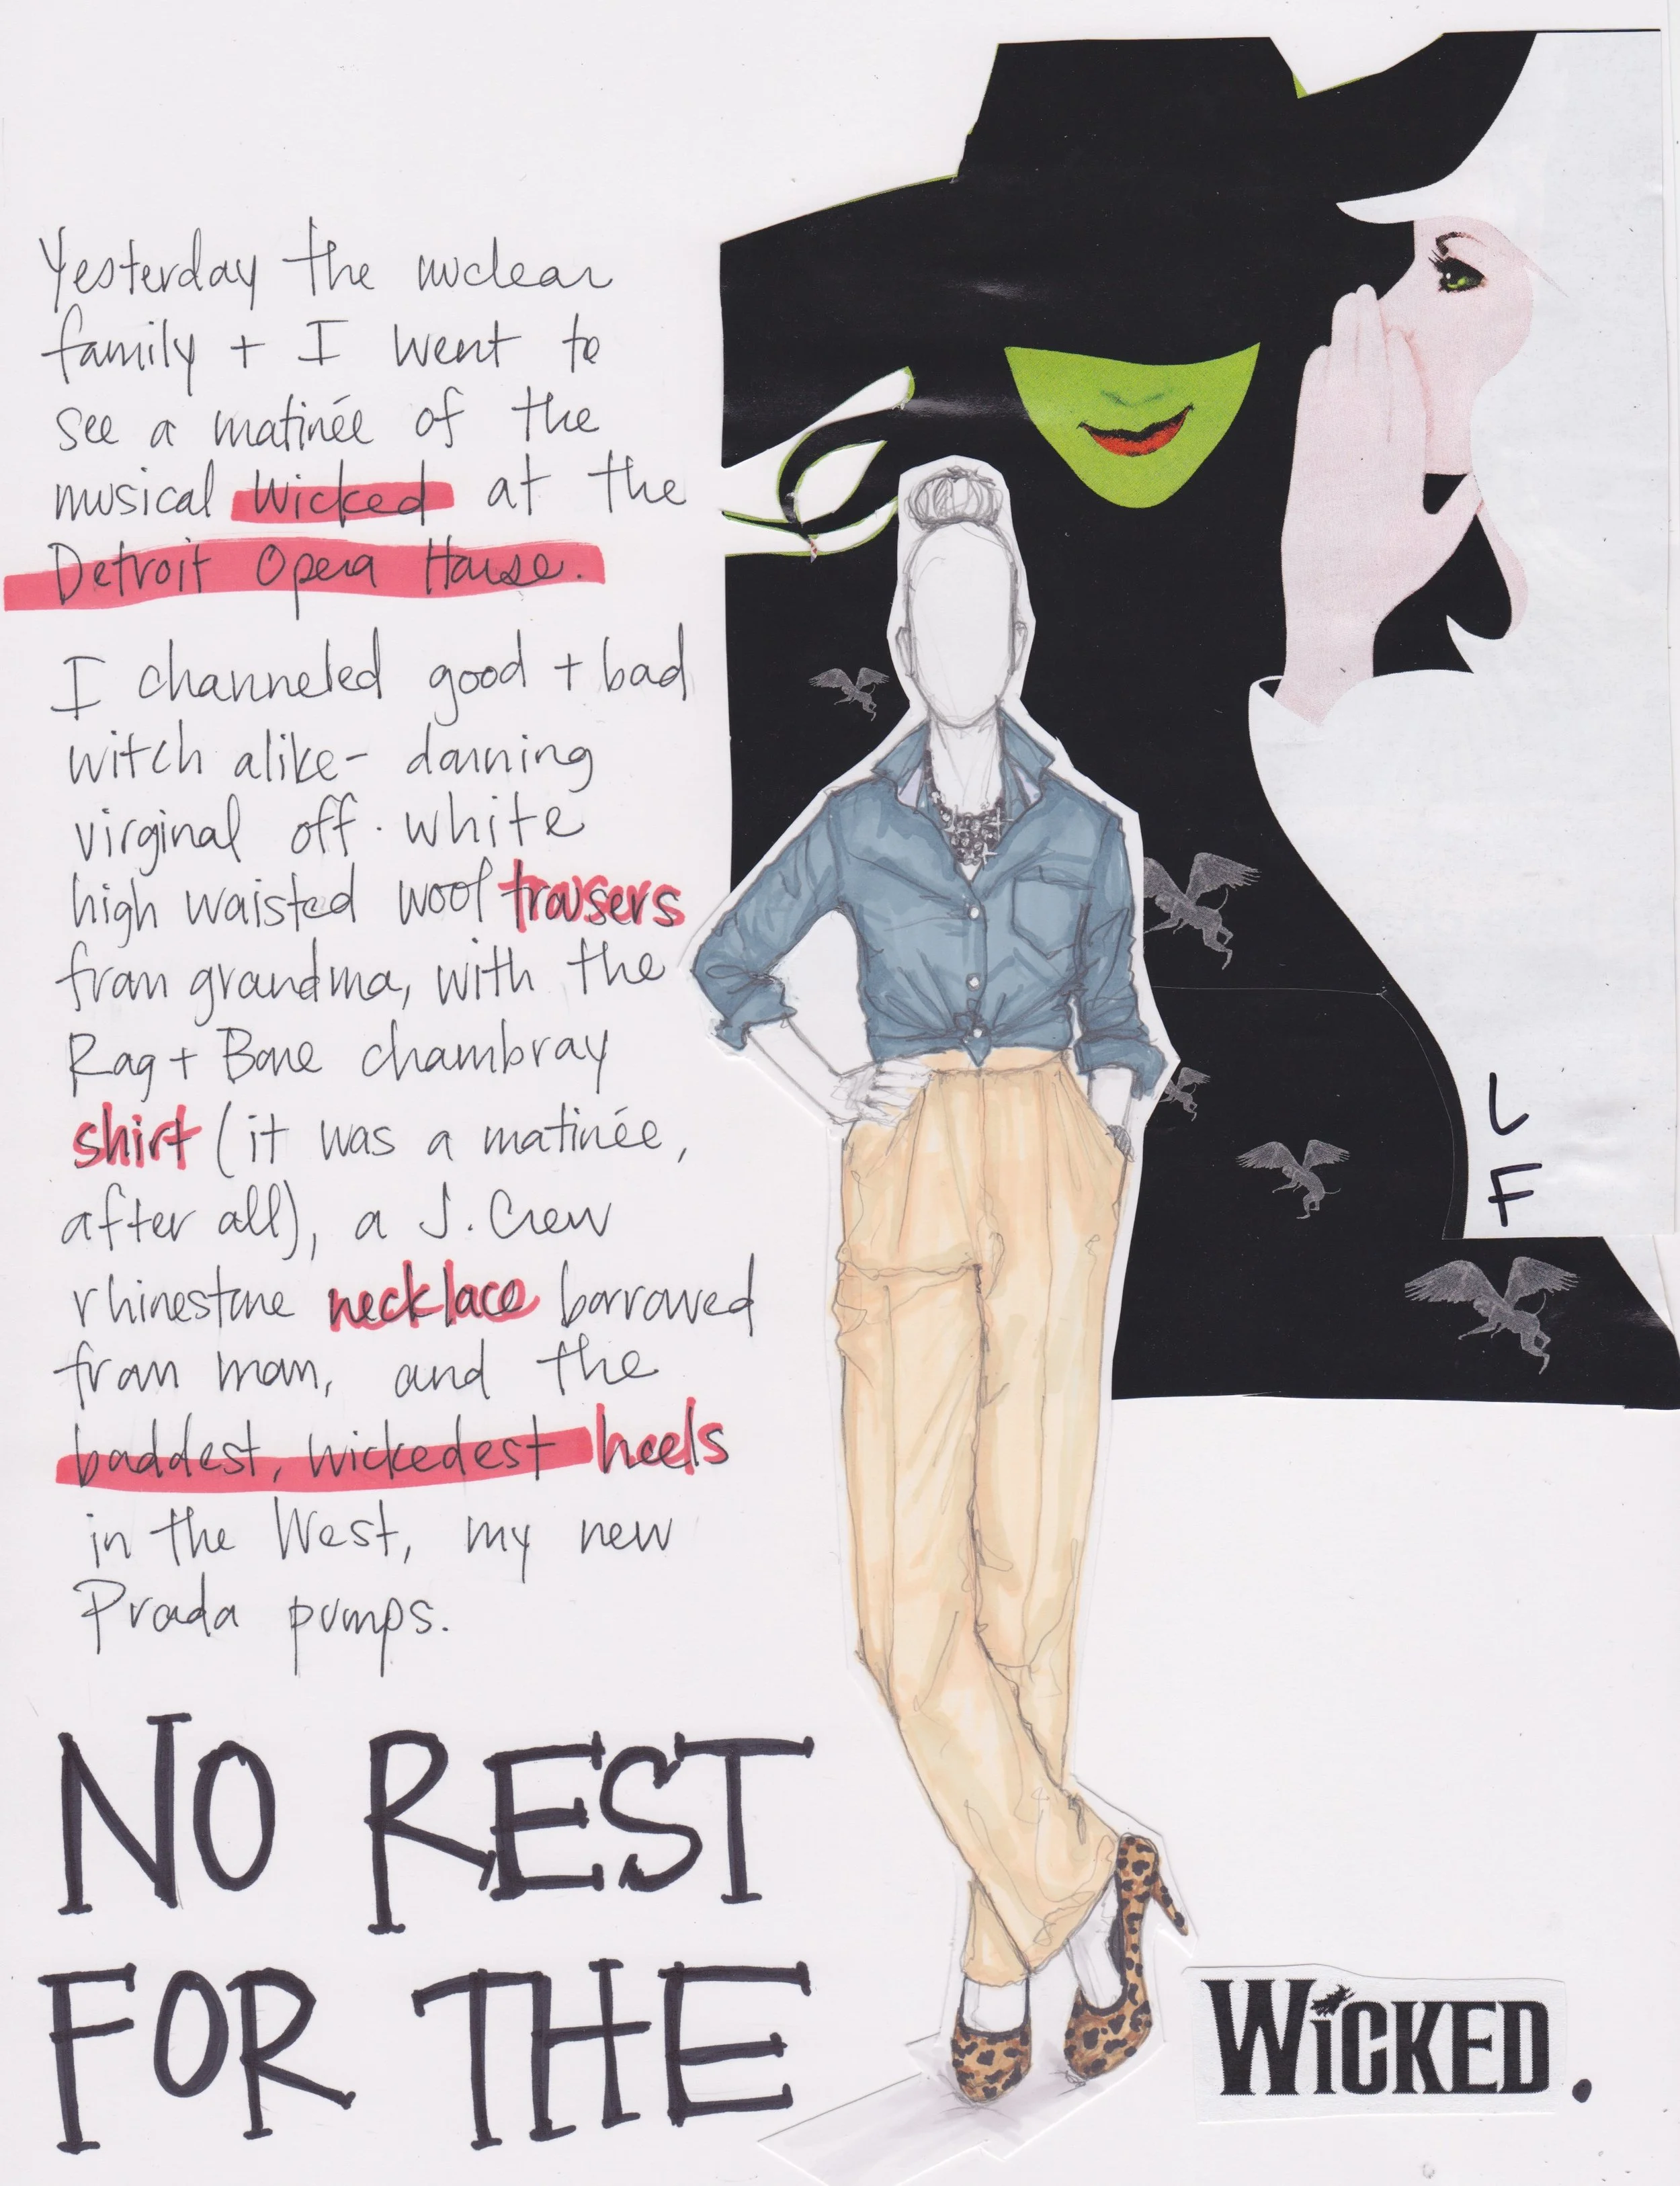 Yesterday the nuclear
family + I went to
see a matinée of the
musical Wicked at the
Detroit Opera House.
I channeled good + bad
witch alike- donning
virginal off-white
high waisted wool trousers
from grandma, with the
Rag + Bone chambray
shirt (it was a matinée,
after all), a J. Crew
rhinestone necklace borrowed
from mom, and the
baddest, wickedest heels
in the West, my new
Prada pumps.
L
F
NO REST
FOR THE
WiCKED.